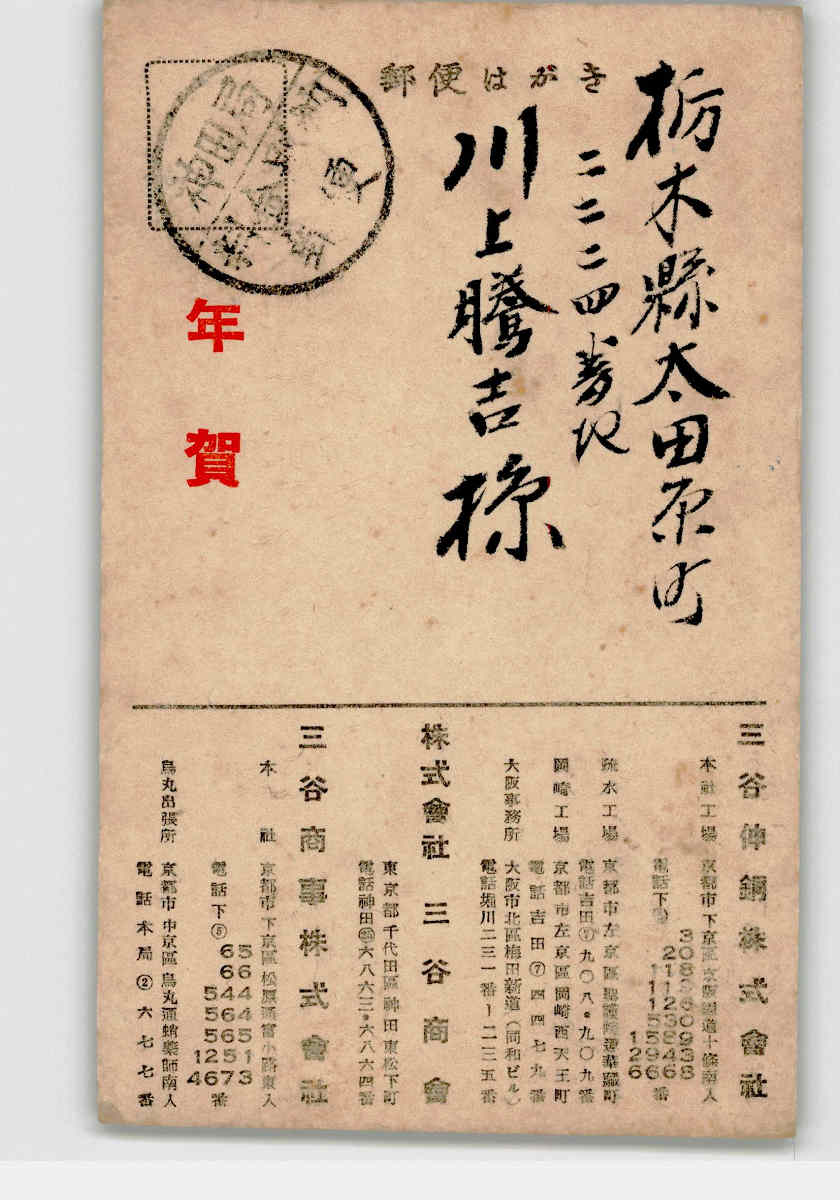 郵便はがき
神田局
料金別納
郵便
年賀
栃木縣太田原町
二二二四番地
川上騰吉様
三谷伸銅株式會社
本社工場 京都市下京區京阪國道十條南入
電話下
疏水工場 京都市左京區聖護院蓮華藏町
電話吉田⑦九〇八・九〇九番
岡崎工場 京都市左京區岡崎西天王町
電話吉田⑦四四七九番
大阪事務所 大阪市北區梅田新道(同和ビル)
電話堀川二三一番ー二三五番
株式會社 三谷商會
東京都千代田區神田東松下町
電話神田㉕六八六三・六八六四番
三谷商事株式會社
本社 京都市下京區松原通富小路東入
電話下⑤ 番
烏丸出張所 京都市中京區烏丸通蛸藥師南入
電話本局②六七七番